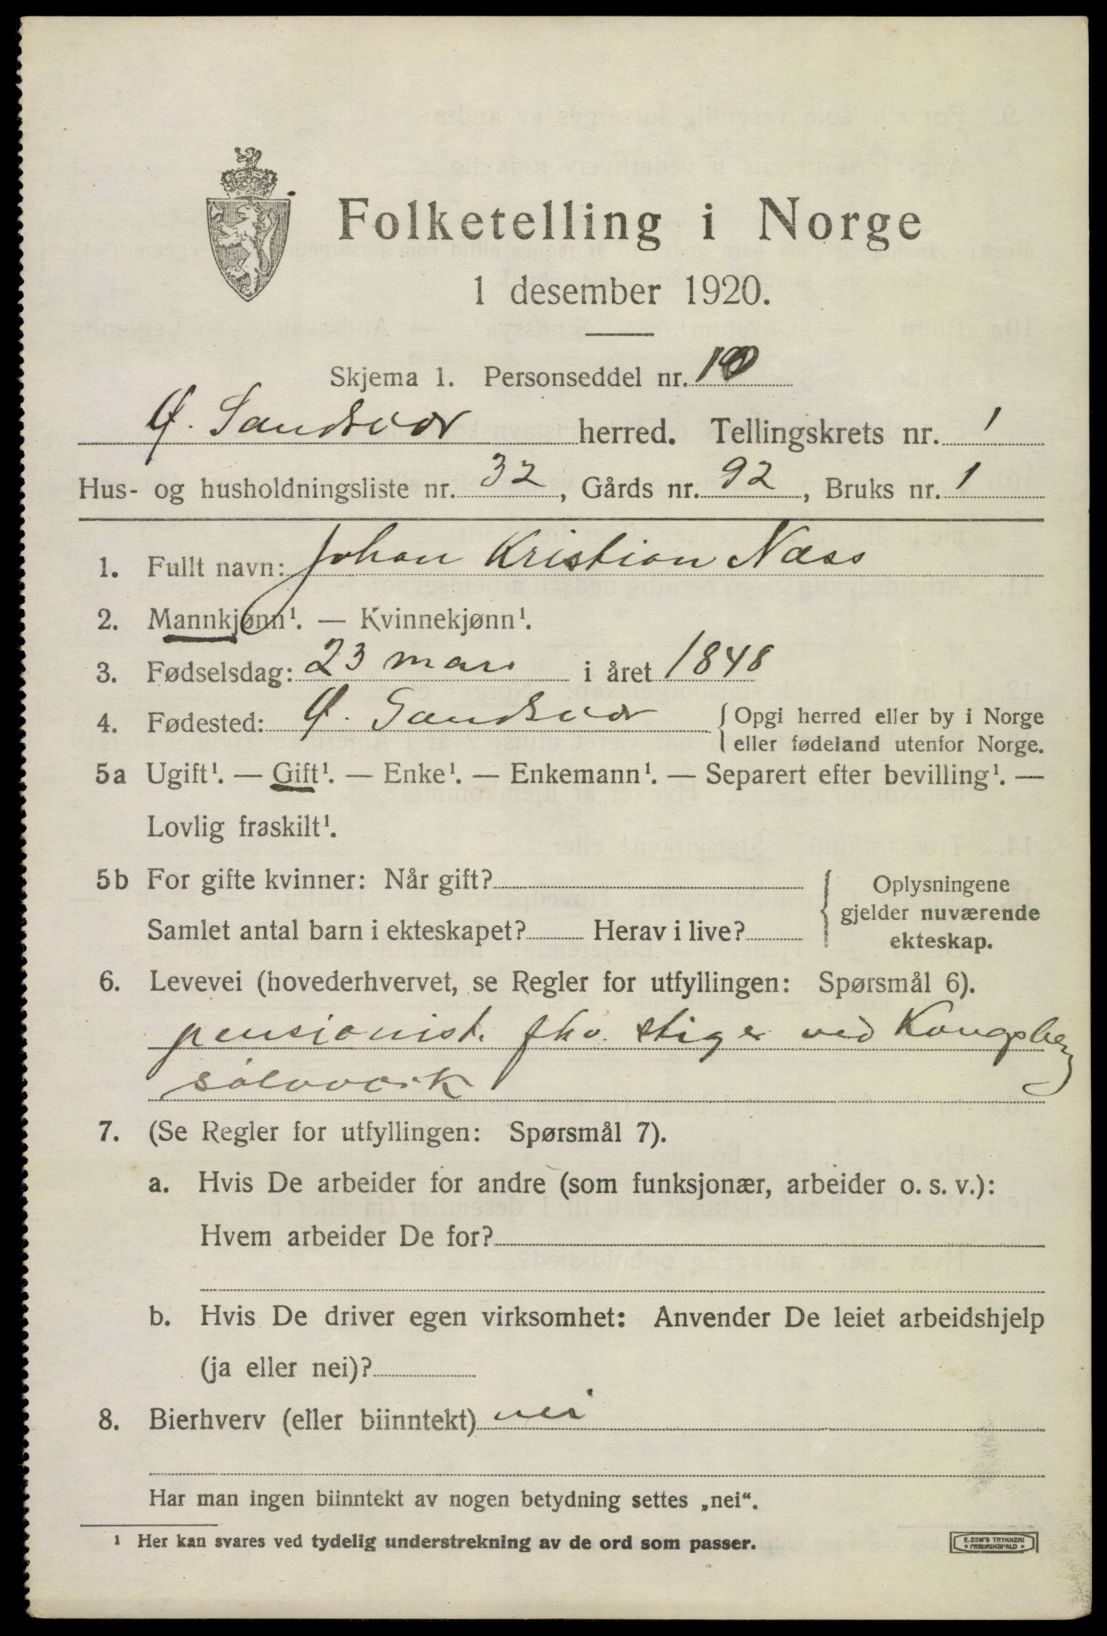 Folketelling i Norge
1 desember 1920.
Skjema 1. Personseddel nr.
Ø. Sandsvær herred. Tellingskrets nr. 1
Hus- og husholdningsliste nr. 32, Gårds nr. 92, Bruks nr. 1
1. Fullt navn: Johan Kristian Næss
2. Mannkjønn¹. — Kvinnekjønn¹.
3. Fødselsdag: 23 mars i året 1848
4. Fødested: Ø. Sandsvær { Opgi herred eller by i Norge
eller fødeland utenfor Norge.
5a Ugift¹. — Gift¹. — Enke¹. — Enkemann¹. — Separert efter bevilling¹. —
Lovlig fraskilt¹.
5b For gifte kvinner: Når gift?
Samlet antal barn i ekteskapet? Herav i live?
{ Oplysningene
gjelder nuværende
ekteskap.
6. Levevei (hovederhvervet, se Regler for utfyllingen: Spørsmål 6).
pensionist. fhv. stiger ved Kongsberg
sølvverk
7. (Se Regler for utfyllingen: Spørsmål 7).
a. Hvis De arbeider for andre (som funksjonær, arbeider o. s. v.):
Hvem arbeider De for?
b. Hvis De driver egen virksomhet: Anvender De leiet arbeidshjelp
(ja eller nei)?
8. Bierhverv (eller biinntekt) nei
Har man ingen biinntekt av nogen betydning settes „nei“.
¹ Her kan svares ved tydelig understrekning av de ord som passer.
E. SEM'S TRYKKERI
FREDRIKSHALD